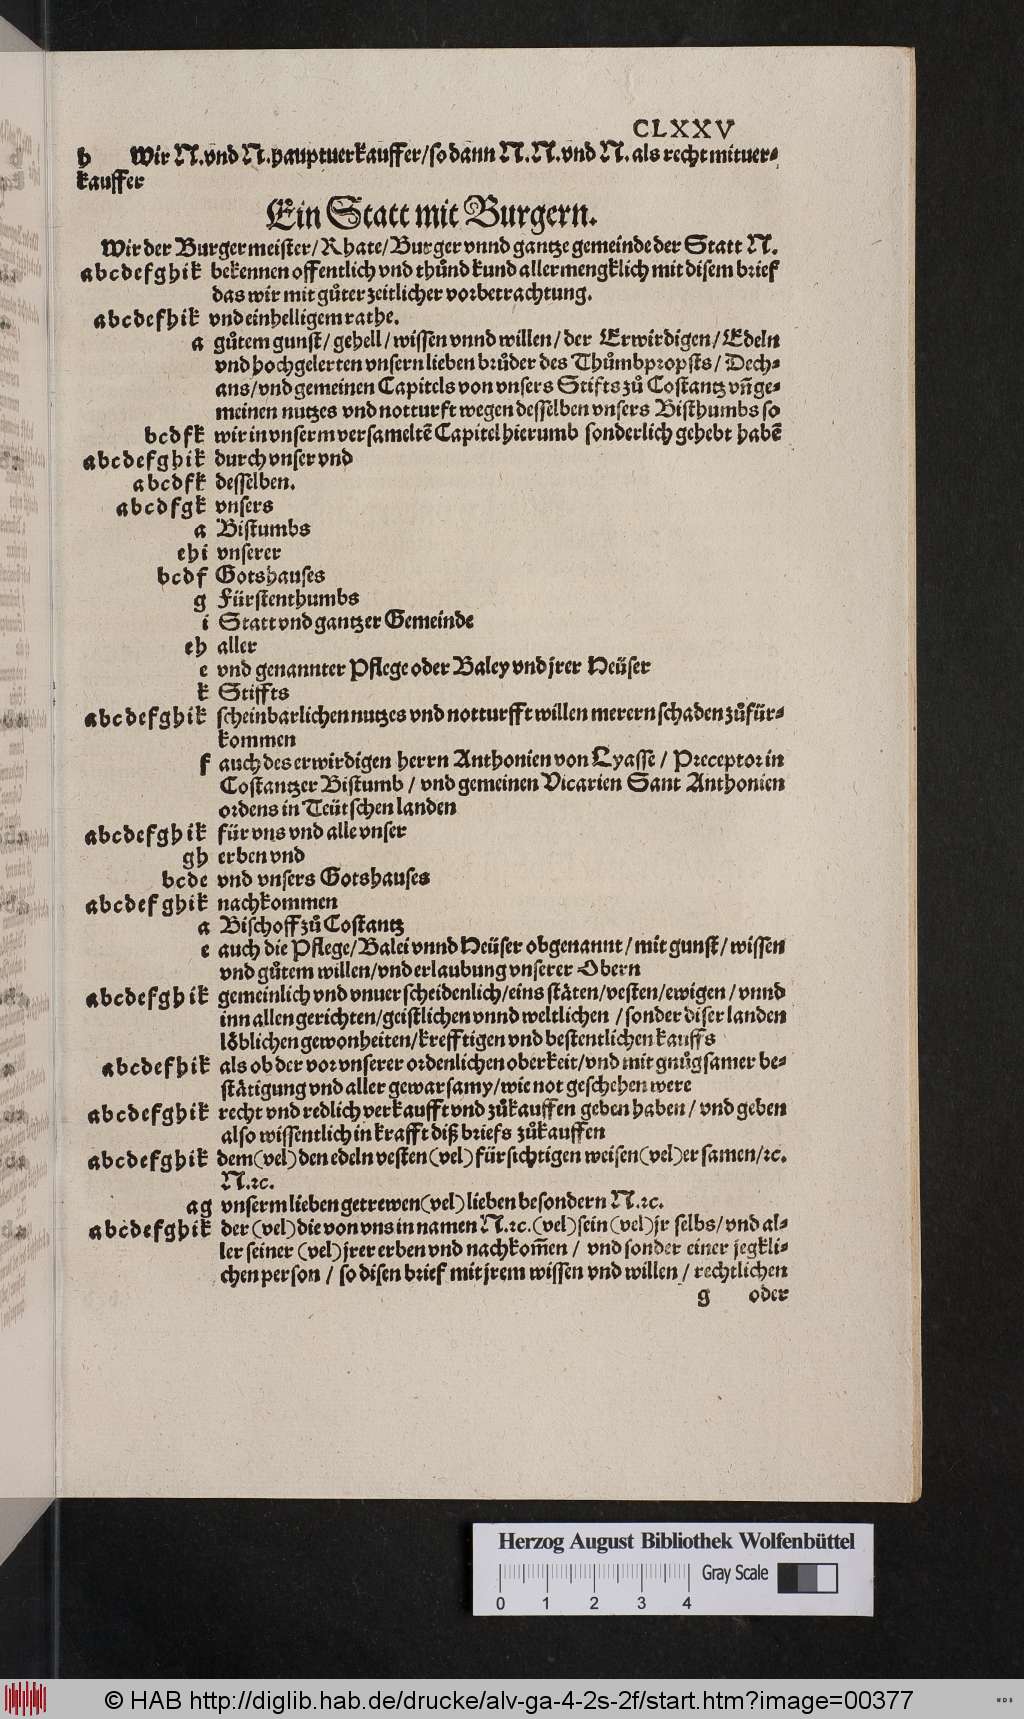 CLXXV
h Wir N. vnd N. hauptuerkauffer/ so dann N. N. vnd N. als recht mituer⸗
kauffer
Ein Statt mit Burgern.
Wir der Burgermeister/ Rhate/ Burger vnnd gantze gemeinde der Statt N.
abcdefghik bekennen offentlich vnd thůnd kund allermengklich mit disem brief
das wir mit gůter zeitlicher vorbetrachtung.
abcdefhik vnd einhelligem rathe.
a gůtem gunst/ gehell/ wissen vnnd willen/ der Erwirdigen/ Edeln
vnd hochgelerten vnsern lieben brůder des Thůmbpropsts/ Dech⸗
ans/ vnd gemeinen Capitels von vnsers Stifts zů Costantz vñ ge⸗
meinen nutzes vnd notturft wegen desselben vnsers Bisthumbs so
bcdfk wir in vnserm versameltē Capitel hierumb sonderlich gehebt habē
abcdefghik durch vnser vnd
abcdfk desselben.
abcdfgk vnsers
a Bistumbs
ehi vnserer
bcdf Gotshauses
g Fürstenthumbs
i Statt vnd gantzer Gemeinde
eh aller
e vnd genannter Pflege oder Baley vnd jrer Heüser
k Stiffts
abcdefghik scheinbarlichen nutzes vnd notturfft willen merern schaden zůfür⸗
kommen
f auch des erwirdigen herrn Anthonien von Lyasse / Preceptor in
Costantzer Bistumb / vnd gemeinen Vicarien Sant Anthonien
ordens in Teütschen landen
abcdefghik für vns vnd alle vnser
gh erben vnd
bcde vnd vnsers Gotshauses
abcdefghik nachkommen
a Bischoff zů Costantz
e auch die Pflege/ Balei vnnd Heüser obgenannt / mit gunst/ wissen
vnd gůtem willen/ vnd erlaubung vnserer Obern
abcdefghik gemeinlich vnd vnuerscheidenlich/ eins stäten/ vesten/ ewigen / vnnd
inn allen gerichten/ geistlichen vnnd weltlichen / sonder diser landen
löblichen gewonheiten/ krefftigen vnd bestentlichen kauffs
abcdefhik als ob der vor vnserer ordenlichen oberkeit/ vnd mit gnůgsamer be⸗
stätigung vnd aller gewarsamy/ wie not geschehen were
abcdefghik recht vnd redlich verkaufft vnd zůkauffen geben haben / vnd geben
also wissentlich in krafft diß briefs zůkauffen
abcdefghik dem (vel) den edeln vesten (vel) fürsichtigen weisen (vel) ersamen/ ꝛc.
N. ꝛc.
ag vnserm lieben getrewen (vel) lieben besondern N. ꝛc.
abcdefghik der (vel) die von vns in namen N. ꝛc. (vel) sein (vel) jr selbs/ vnd al⸗
ler seiner (vel) jrer erben vnd nachkom̄en / vnd sonder einer jegkli⸗
chen person / so disen brief mit jrem wissen vnd willen / rechtlichen
g oder
Herzog August Bibliothek Wolfenbüttel
Gray Scale
0 1 2 3 4
© HAB http://diglib.hab.de/drucke/alv-ga-4-2s-2f/start.htm?image=00377